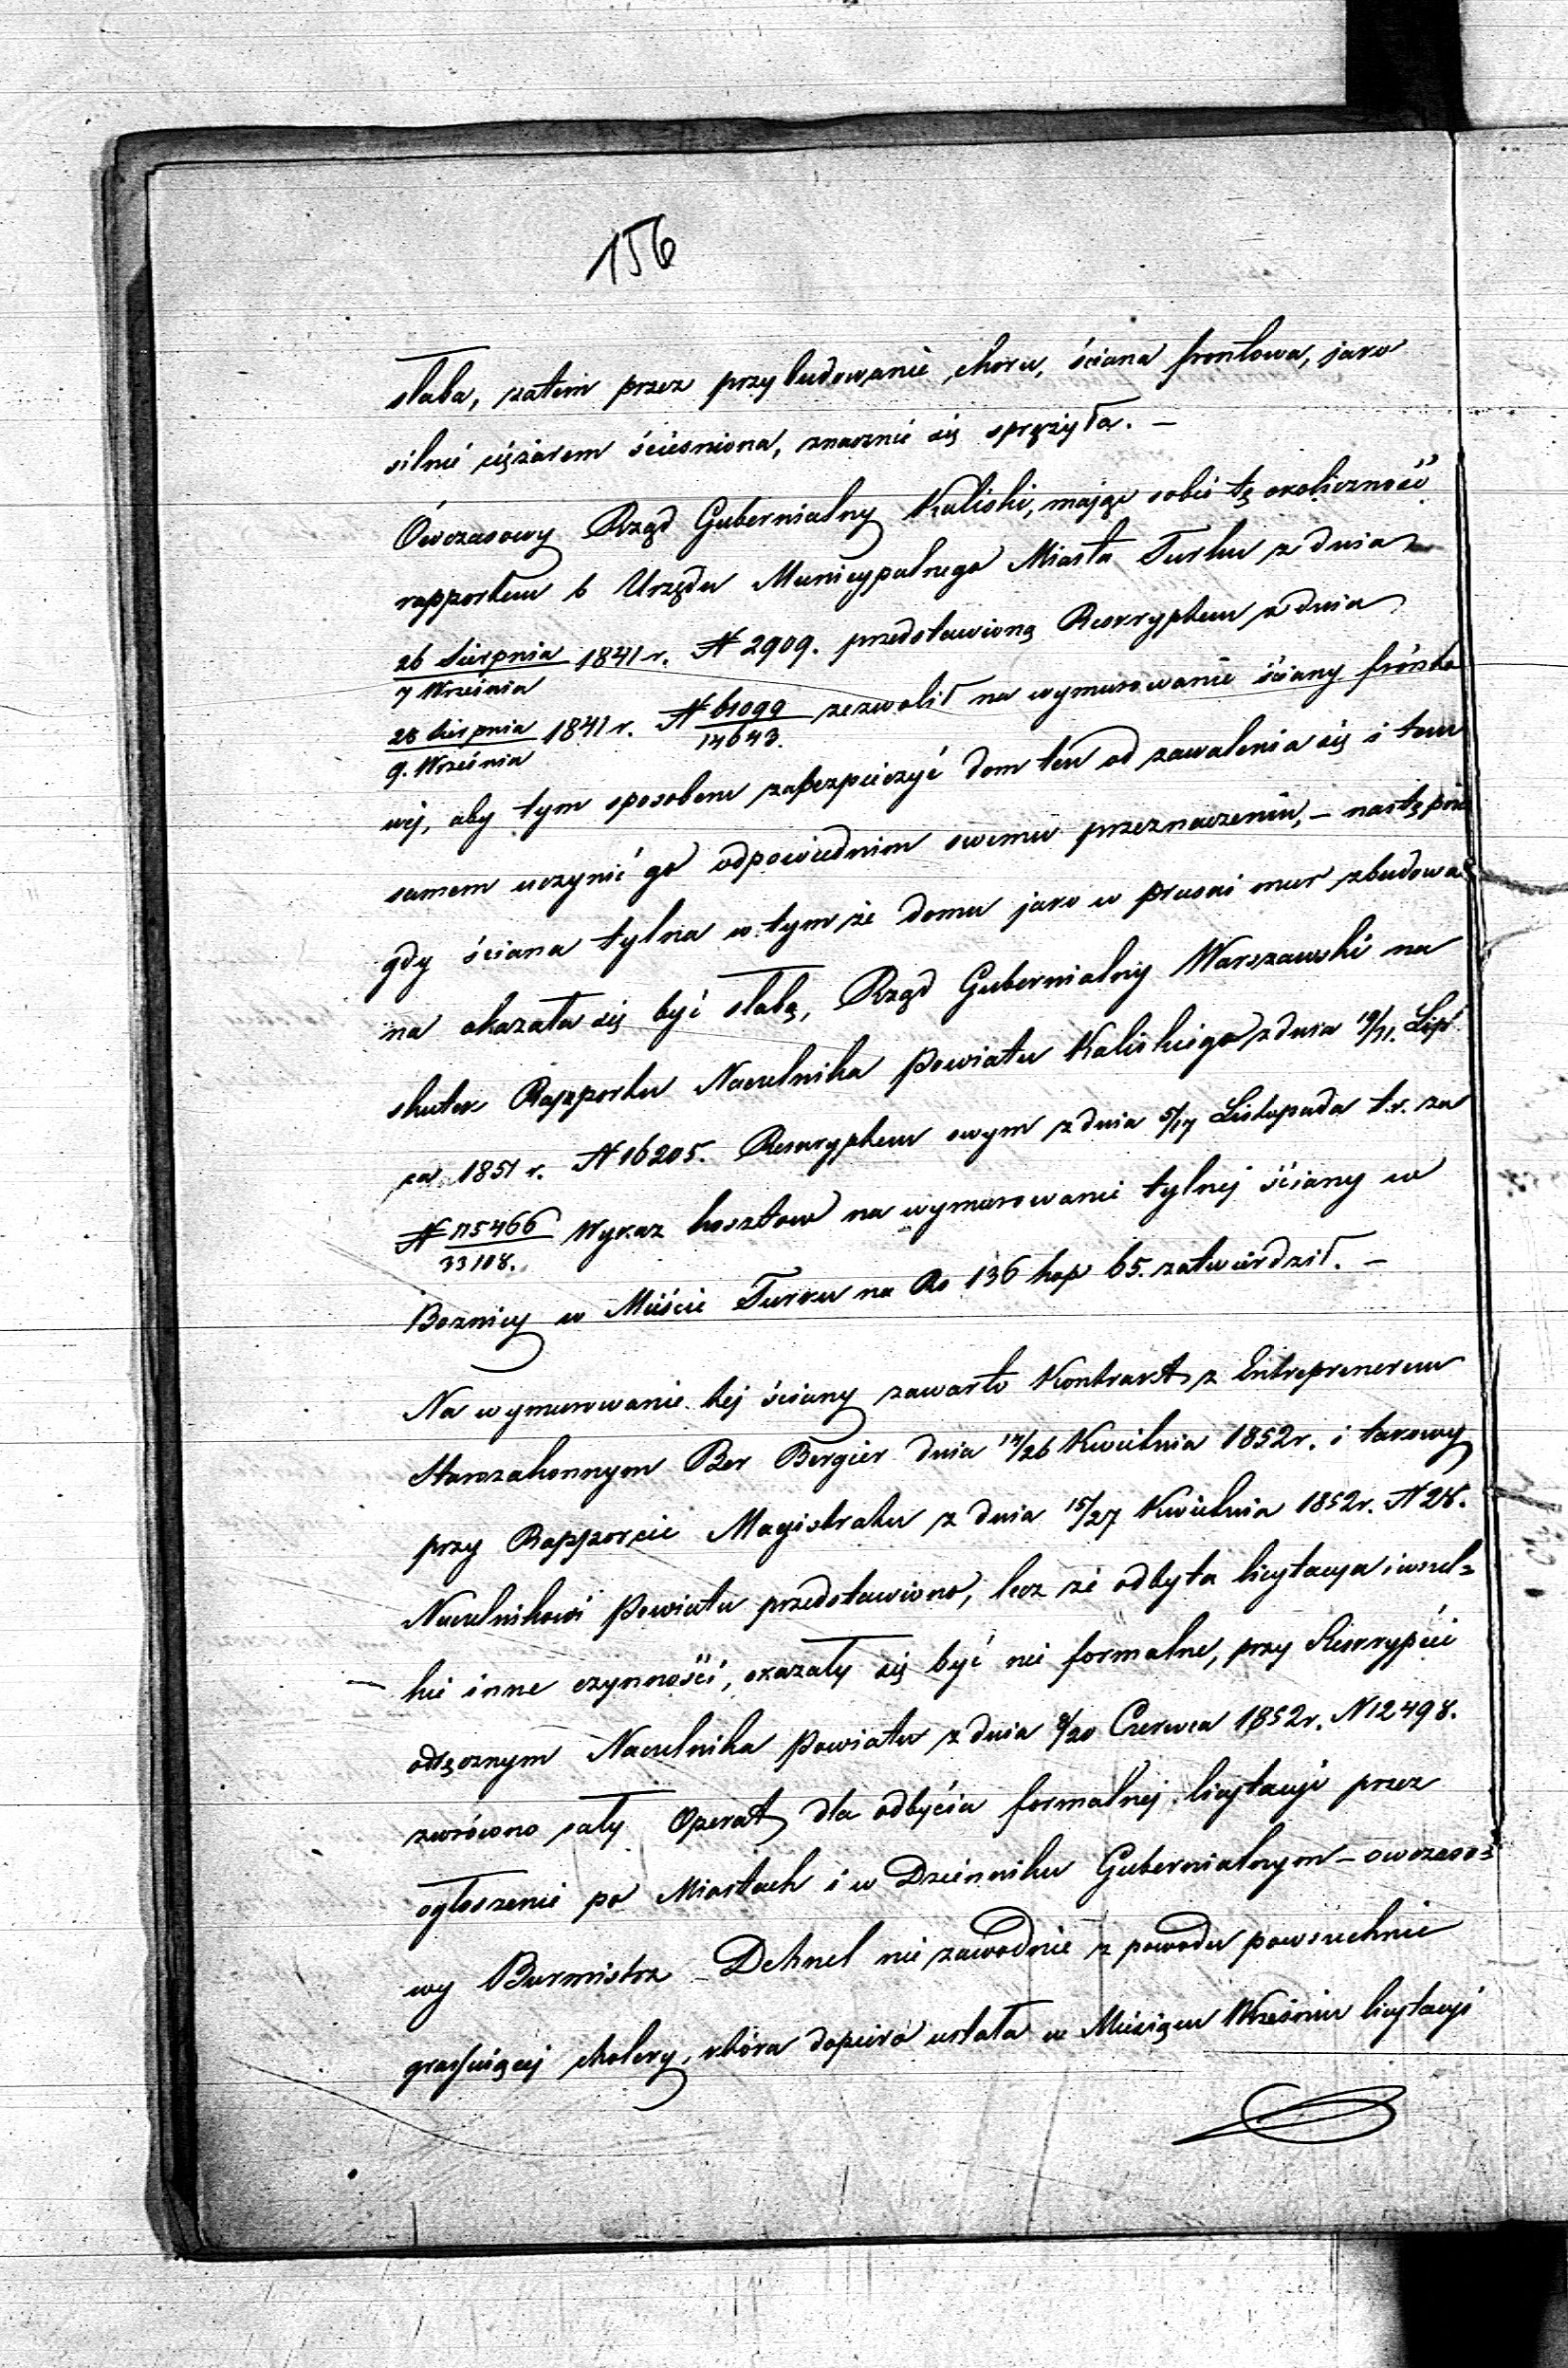 156
słaba, zatem przez przybudowanie choru, ściana frontowa, jako
silnie ciężarem ściesniona, znacznie się sprężyła. –
Ówczasowy Rząd Gubernialny Kaliski, mając sobie tę okoliczność
rapportem b Urzędu Municypalnego Miasta Turku z dnia
26 Sierpnia / 7 Września 1841 r. N 2909. przedstawioną Reskryptem z dnia
28 Sierpnia / 9. Września 1841 r. N 61099 / 14643. zezwolił na wymurowanie ściany fronto
wej, aby tym sposobem zabezpieczyć dom ten od zawalenia się i tem
samem uczynić go odpowiednim swemu przeznaczeniu, – następnie
gdy ściana tylna w tym że domu jako w pruski mur zbudowa
na okazała się być słabą, Rząd Gubernialny Warszawski na
skutek Rapportu Naczelnika Powiatu Kaliskiego z dnia 19/31. Lip
ca 1851 r. N 16205. Reskryptem swym z dnia 5/17 Listopada t.r. za
N 115466 / 33108. Wykaz kosztow na wymurowanie tylnej ściany w
Boznicy w Mieście Turku na Rs 136 kop 65. zatwierdził. –
Na wymurowanie tej ściany zawarto Kontrakt z Entreprenerem
Starozakonnym Ber Bergier dnia 14/26 Kwietnia 1852 r. i takowy
przy Rapporcie Magistratu z dnia 15/27 Kwietnia 1852 r. N 28.
Naczelnikowi Powiatu przedstawiono, lecz że odbyta licytacya i wszel=
kie inne czynności, okazały się być nie formalne, przy Reskrypcie
odręcznym Naczelnika Powiatu z dnia 8/20 Czerwca 1852 r. N 12498.
zwrócono cały Operat dla odbycia formalnej licytacyi przez
ogłoszenie po Miastach i w Dzienniku Gubernialnym – owczaso=
wy Burmistrz Dehnel nie zawodnie z powodu powszechnie
grassującej cholery, która dopiero ustała w Miesiącu Wrześniu licytacyi